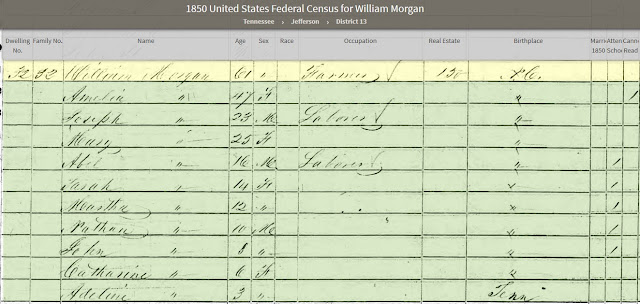 1850 United States Federal Census for William Morgan
Tennessee › Jefferson › District 13
Dwelling No. Family No. Name Age Sex Race Occupation Real Estate Birthplace Marri 1850 Atten Schoo Canno Read
52 52 William Morgan 61 " Farmer 130 N.C.
Amelia " 47 F " 1
Joseph " 23 M Laborer "
Mary " 25 F "
Abil " 16 M Laborer " 1
Sarah " 14 F " 1
Martha " 12 " " 1
Nathan " 10 M " 1
John " 8 " " 1
Catharine " 6 F "
Adeline " 3 " Tenn